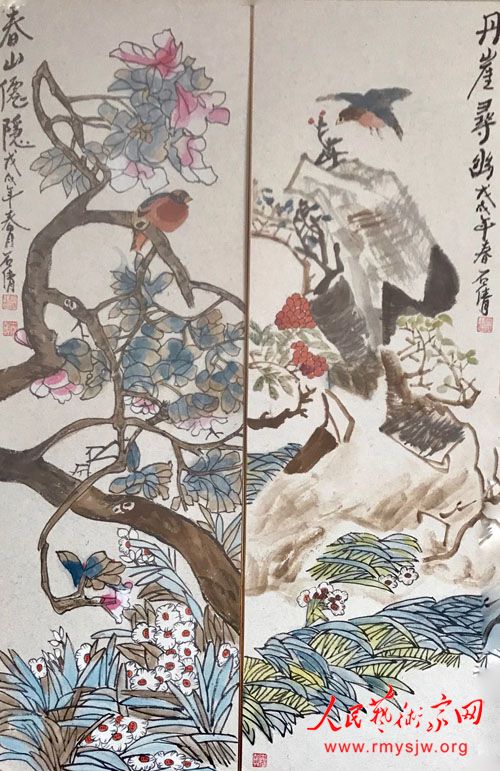 丹崖尋幽 戊戌年春 石倩
春山僊隱 戊戌年春月 石倩
人民藝術家网
www.rmysjw.org